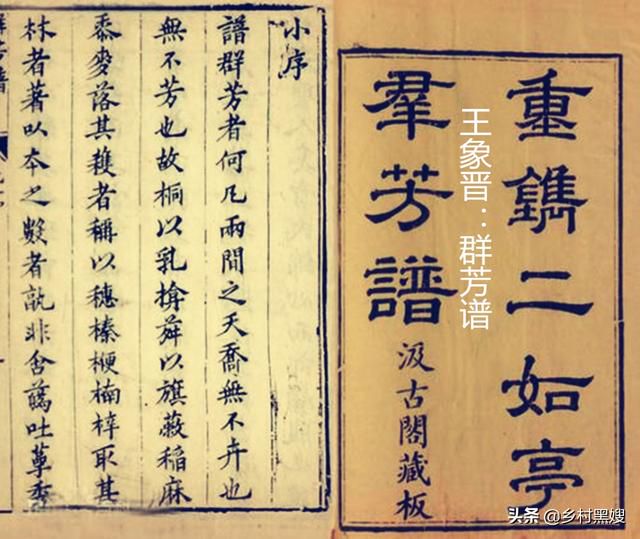 重鐫二如亭
羣芳譜
汲古閣藏板
王象晋：群芳谱
小序
譜群芳者何凡兩間之夭喬無不卉也
無不芳也故桐以乳揜以旗蔽稲麻
黍麥落其穫者稱以穗榛楩楠梓取其
者著以夲之數者孰非含吐蕚秀
头条 @乡村黑嫂